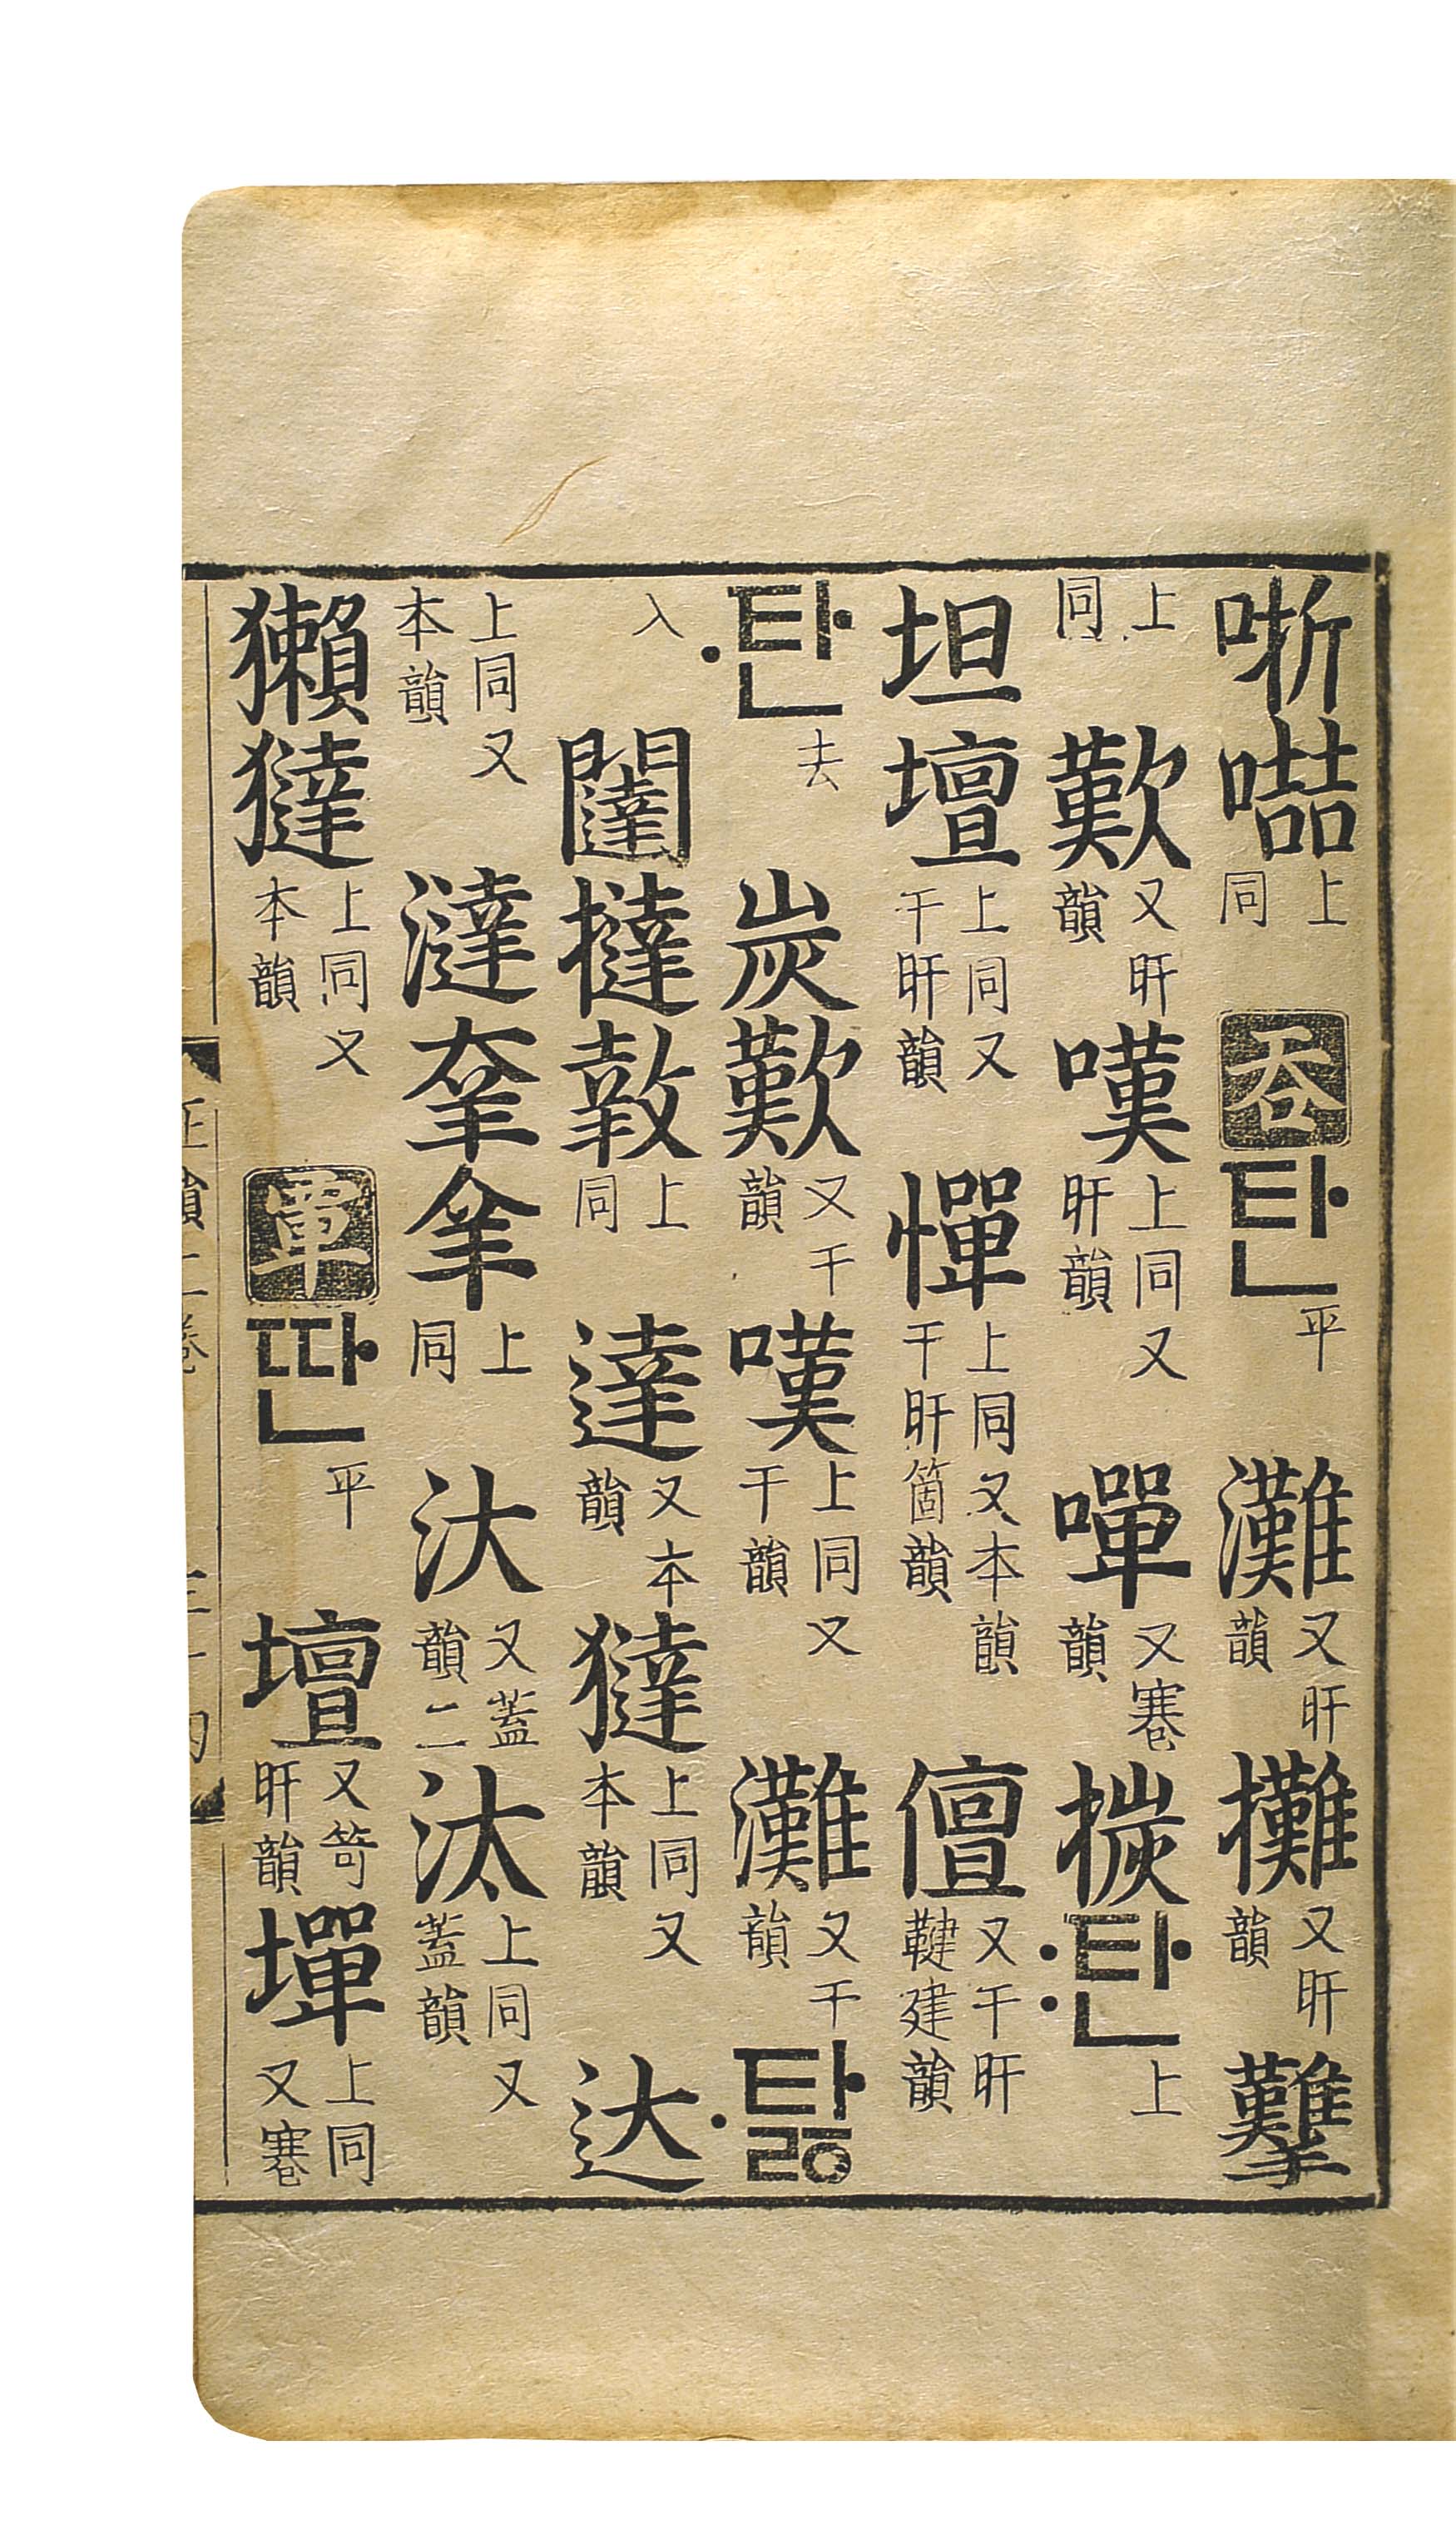 哳上同呑탄平灘又旰韻攤又旰韻
上同歎又旰韻嘆上同又旰韻嘽又寋韻탄〯上
坦壇上同又干旰韻憚上同又本韻干旰箇韻儃又干旰鞬建韻
탄〮去炭歎又干韻嘆上同又干韻灘又干韻탏〮
入闥撻上同達又本韻㺚上同又本韻达
上同又本韻澾羍上同汏又蓋韻二汰上同又蓋韻
獺㺚上同又本韻覃딴平壇又笴旰韻墠上同又寋